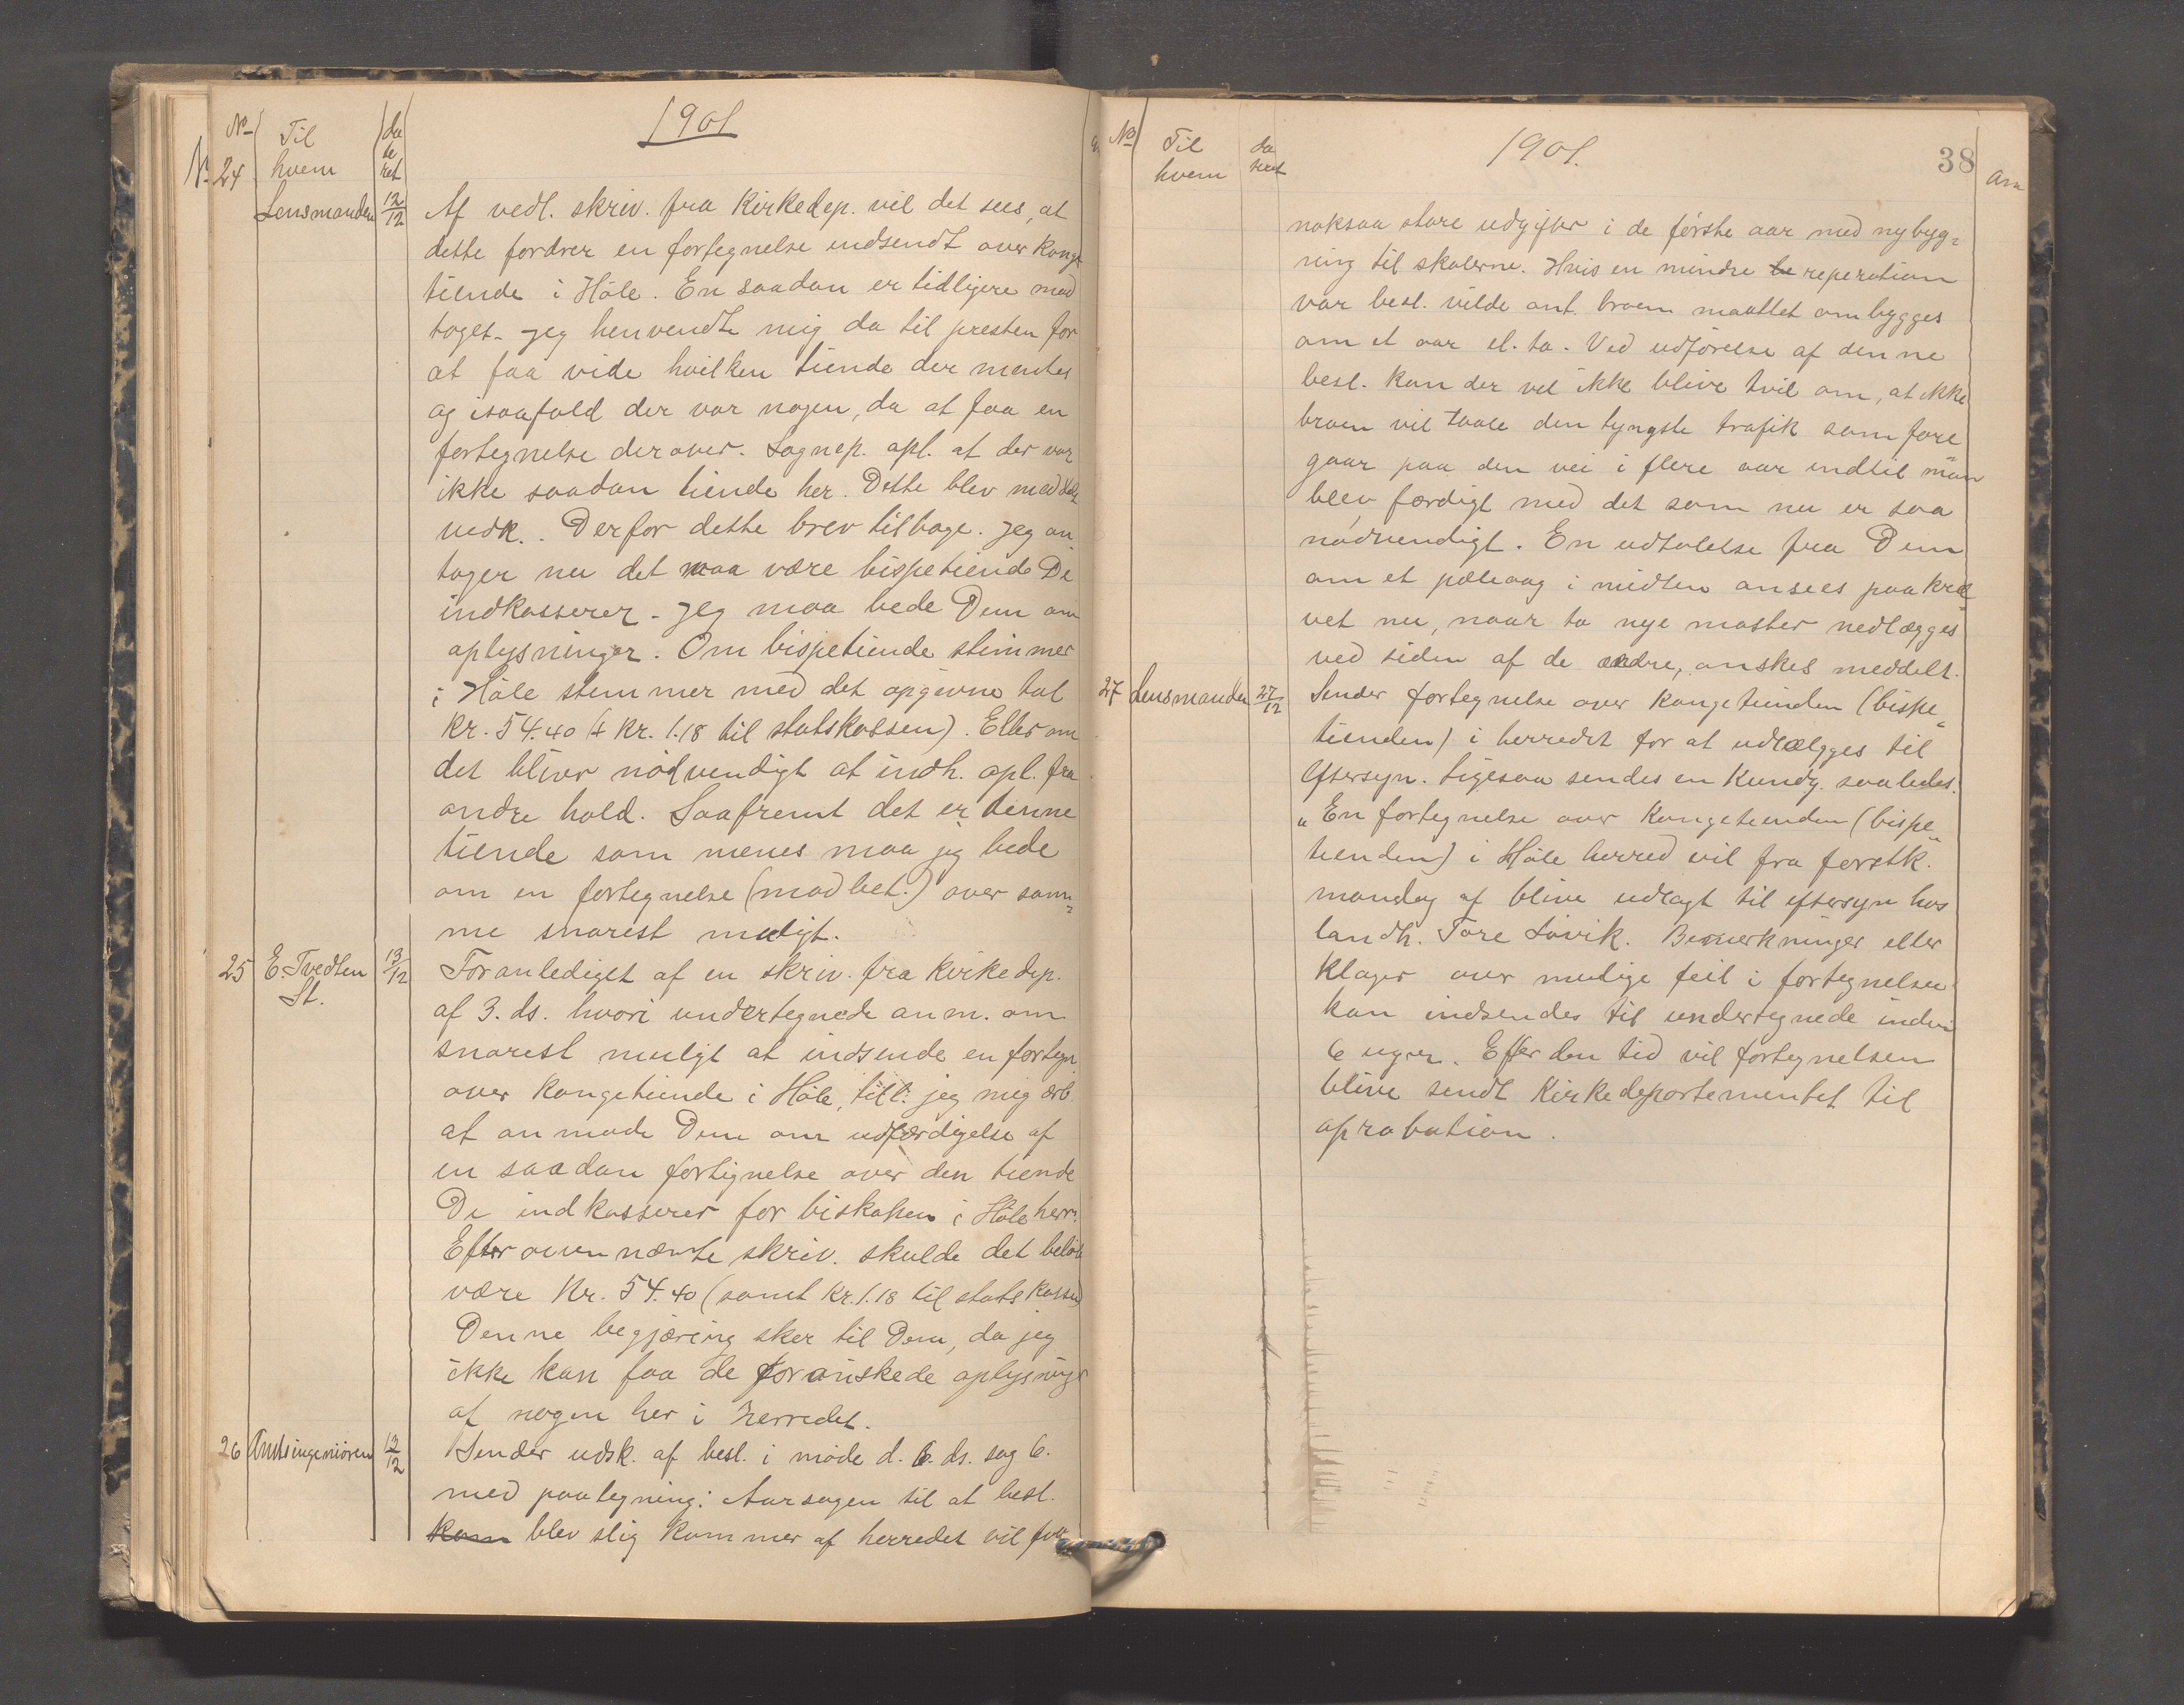 1901
No Til hvem da te ret
No 24 Lensmanden 12/12 Af vedl. skriv. fra Kirkedep. vil det sees, at
dette fordrer en fortegnelse indsendt over konge
tiende i Höle. En saadan er tidligere mod
taget. Jeg henvendte mig da til presten for
at faa vide hvilken tiende der mentes
og isaafald der var nogen, da at faa en
fortegnelse derover. Sognep. opl. at der var
ikke saadan tiende her. Dette blev meddelt
vedk. Derfor dette brev tilbage. Jeg an
tager nu det maa være bispetiende De
indkasserer. Jeg maa bede Dem om
oplysninger. Om bispetiende stimmer
i Höle stemmer med det opgivne tal
kr. 54.40 (+ kr. 1.18 til statskassen). Eller om
det bliver nödvendigt at indh. opl. fra
andre hold. Saafremt det er denne
tiende som menes maa jeg bede
om en fortegnelse (mod bet.) over sam-
me snarest muligt.
25 E. Tvedten St. 13/12 Foranlediget af en skriv. fra Kirkedep.
af 3. ds. hvori undertegnede anm. om
snarest muligt at indsende en fortegn
over kongetiende i Höle, till. jeg mig ærb.
at anmode Dem om udfærdigelse af
en saadan fortignelse over den tiende
De indkasserer for biskopen i Höle herr.
Efter ovennævnte skriv. skulde det belöb
være Kr. 54.40 (samt Kr. 1.18 til stats kassen)
Denne begjæring sker til Dem, da jeg
ikke kan faa de forönskede oplysninger
af nogen her i herredet.
26 Amtsingeniören 13/12 Sender udsk. af besl. i möde d. 6. ds. sag 6.
med paategning: Aarsagen til at besl.
kom blev slig kommer af herredet vil faa
1901.
38
No Til hvem da teret
Anm
noksaa store udgifter i de förste aar med nybyg-
ning til skolerne. Hvis en mindre be reperation
var besl. vilde ant. broen maattet ombygges
om et aar el. to. Ved udförelse af denne
besl. kan der vel ikke blive tvil om, at ikke
broen vil taale den tyngste trafik som fore
gaar paa den vei i flere aar indtil man
blev færdigt med det som nu er saa
nödvendigt. En udtalelse fra Dem
om et pæleaag i midten ansees paakræ
vet nu, naar to nye master nedlægges
ved siden af de andre, önskes meddelt.
27 Lensmanden 27/12 Sender fortegnelse over kongetienden (bispe-
tienden) i herredet for at udlægges til
eftersyn. Ligesaa sendes en Kundg. saaledes:
"En fortegnelse over Kongetienden (bispe-
tienden) i Höle herred vil fra förstk.
mandag af blive udlagt til eftersyn hos
landh. Tore Lövik. Bemerkninger eller
klager over mulige feil i fortegnelsen
kan indsendes til undertegnede inden
6 uger. Efter den tid vil fortegnelsen
blive sendt Kirkedepartementet til
aprobation.